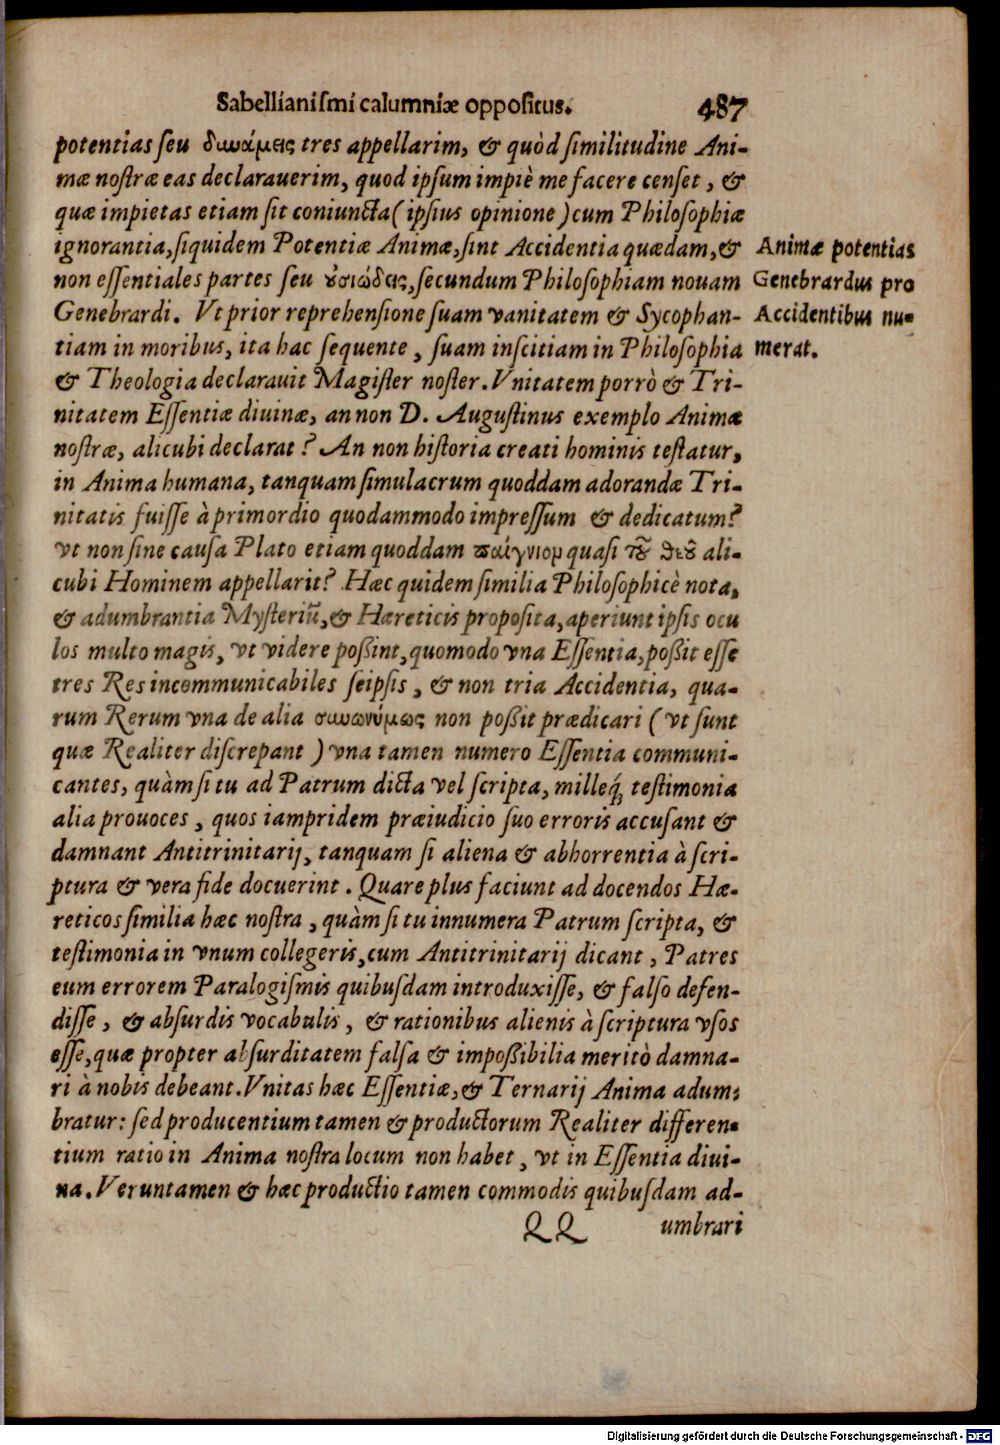 Sabellianiſmi calumniæ oppoſitus. 487
potentias ſeu δυνάμεις tres appellarim, & quòd ſimilitudine Ani-
mæ noſtræ eas declarauerim, quod ipſum impiè me facere cenſet, &
quæ impietas etiam ſit coniuncta (ipſius opinione) cum Philoſophiæ
ignorantia, ſiquidem Potentiæ Animæ, ſint Accidentia quædam, &
non eſſentiales partes ſeu ȣ̓σιώδεις, ſecundum Philoſophiam nouam
Genebrardi. Vt prior reprehenſione ſuam vanitatem & Sycophan-
tiam in moribus, ita hac ſequente, ſuam inſcitiam in Philoſophia
& Theologia declarauit Magiſter noſter. Vnitatem porrò & Tri-
nitatem Eſſentiæ diuinæ, an non D. Auguſtinus exemplo Animæ
noſtræ, alicubi declarat? An non hiſtoria creati hominis teſtatur,
in Anima humana, tanquam ſimulacrum quoddam adorandæ Tri-
nitatis fuiſſe à primordio quodammodo impreſſum & dedicatum?
vt non ſine cauſa Plato etiam quoddam παίγνιον quaſi τȣ͂ θεȣ͂ ali-
cubi Hominem appellarit? Hæc quidem ſimilia Philoſophicè nota,
& adumbrantia Myſteriũ, & Hæreticis propoſita, aperiunt ipſis ocu
los multo magis, vt videre poßint, quomodo vna Eſſentia, poßit eſſe
tres Res incommunicabiles ſeipſis, & non tria Accidentia, qua-
rum Rerum vna de alia συνωνύμως non poßit prædicari (vt ſunt
quæ Realiter diſcrepant) vna tamen numero Eſſentia communi-
cantes, quàm ſi tu ad Patrum dicta vel ſcripta, milleq́; teſtimonia
alia prouoces, quos iampridem præiudicio ſuo erroris accuſant &
damnant Antitrinitarij, tanquam ſi aliena & abhorrentia à ſcri-
ptura & vera fide docuerint. Quare plus faciunt ad docendos Hæ-
reticos ſimilia hæc noſtra, quàm ſi tu innumera Patrum ſcripta, &
teſtimonia in vnum collegeris, cum Antitrinitarij dicant, Patres
eum errorem Paralogiſmis quibuſdam introduxiſſe, & falſo defen-
diſſe, & abſurdis vocabulis, & rationibus alienis à ſcriptura vſos
eſſe, quæ propter abſurditatem falſa & impoßibilia meritò damna-
ri à nobis debeant. Vnitas hæc Eſſentiæ, & Ternarij Anima adum-
bratur: ſed producentium tamen & productorum Realiter differen-
tium ratio in Anima noſtra locum non habet, vt in Eſſentia diui-
na. Veruntamen & hæc productio tamen commodis quibuſdam ad-
QQ umbrari
Animæ potentias
Genebrardus pro
Accidentibus nu-
merat.
Digitalisierung gefördert durch die Deutsche Forschungsgemeinschaft - DFG